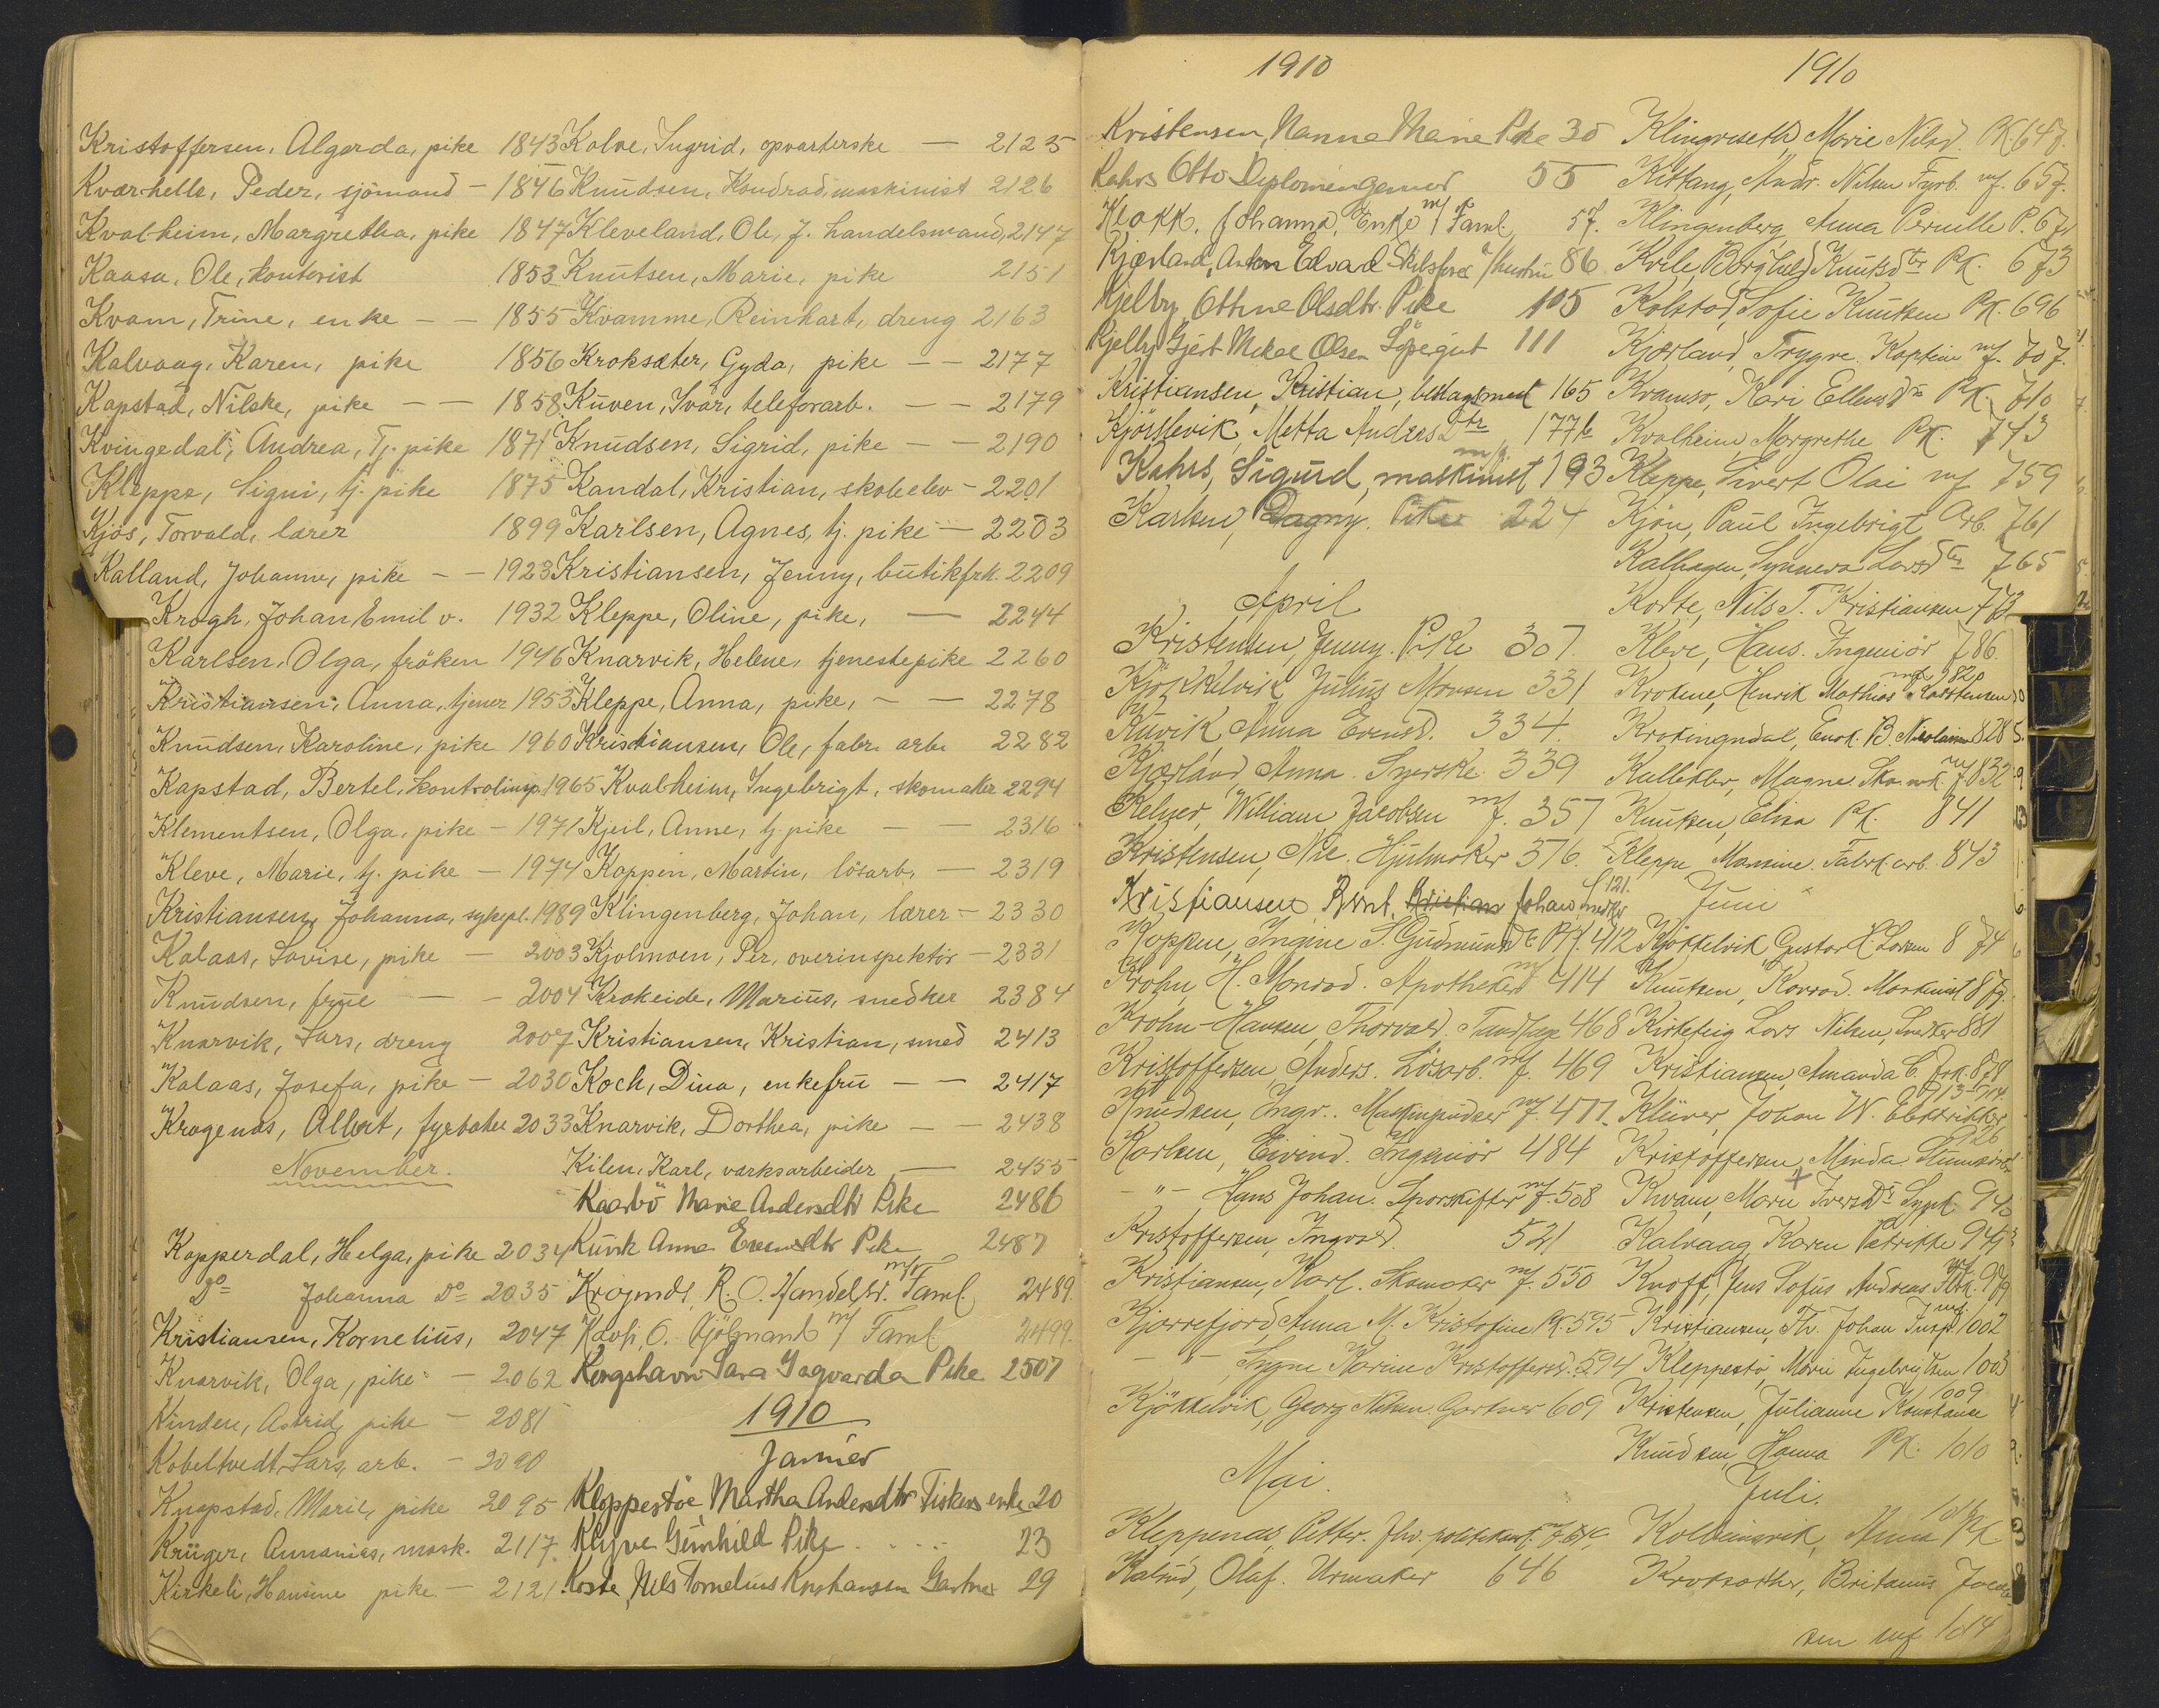 Kristoffersen, Algerda, pike 1843
Kvarhelle, Peder, sjömand - 1846
Kvalheim, Margretha, pike 1847
Kaasa, Ole, kontorist 1853
Kvam, Trine, enke - - 1855
Kalvaag, Karen, pike 1856
Kapstad, Nilske, pike - - 1858
Kvingedal, Andrea, tj. pike 1871
Kleppe, Signi, tj. pike 1875
Kjos, Torvald, lærer 1899
Kalland, Johanne, pike - - 1923
Krogh, Johan Emil v. 1932
Karlsen, Olga, fröken 1946
Kristiansen, Anna, tjener 1953
Knudsen, Karoline, pike 1960
Kapstad, Bertel, kontrolinsp. 1965
Klementsen, Olga, pike - 1971
Kleve, Marie, tj. pike - 1974
Kristiansen, Johanna, sykepl. 1989
Kalaas, Lovise, pike - 2003
Knudsen, frue - - 2004
Knarvik, Lars, dreng 2007
Kalaas, Josefa, pike - 2030
Kragenas, Albert, fyrböter 2033
November.
Kopperdal, Helga, pike 2034
Do Johanna Do 2035
Kristiansen, Kornelius, 2047
Knarvik, Olga, pike - 2062
Kinden, Astrid, pike - 2081
Kobeltvedt, Lars, arb. - 2090
Knapstad, Marie, pike 2095
Krüger, Annanias, mask. 2117
Kirkeli, Hansine pike - 2121
Kalve, Ingrid, opvarterske - 2125
Knudsen, Kondrad, maskinist 2126
Kleveland, Ole, f. handelsmand, 2147
Knutsen, Marie, pike 2151
Kvamme, Reinhart, dreng 2163
Kroksæter, Gyda, pike - - 2177
Kuven, Ivar, telefonarb. - - 2179
Knudsen, Sigrid, pike - - 2190
Kandal, Kristian, skoleelev - 2201
Karlsen, Agnes, tj. pike - 2203
Kristiansen, Jenny, butikfrk. 2209
Kleppe, Oline, pike, - 2244
Knarvik, Helene, tjenestepike 2260
Kleppe, Anna, pike, - - 2278
Kristiansen, Ole, fabr. arb. 2282
Kvalheim, Ingebrigt, skomaker 2294
Kjeil, Anne, tj. pike - - 2316
Koppen, Martin, lösarb. - 2319
Klingenberg, Johan, lærer - 2330
Kjolmoen, Per, overinspektör - 2331
Krokeide, Marius, snedker 2384
Kristiansen, Kristian, smed 2413
Koch, Dina, enkefru - - 2417
Knarvik, Dorthea, pike - - 2438
Kilen, Karl, værksarbeider - 2455
Kaarbö Marie Andersdtr Pike 2486
Kuvik Anna Evensdtr Pike 2487
R. O. Handelsr. m/ Faml. 2489
O. m/ Faml 2499
Kongshavn Sara Pike 2507
1910
Januar
Kleppestöe Martha Andersdtr Fiskers enke 20
Klyve Gunhild Pike . . . . 23
Korte, Nils Tornelius Kristiansen Gartner 29
1910
Kristensen, Nanna Marie Pike 30
Kahrs Otto Diplomingeniør 55
Klokk, Johanna, Enke m/ Faml 57.
Kjærland, Anton Edvard m/ hustru 86
Kjelby Othine Olsdtr. Pike 105
Kjelby Gjert Mikal Olsen Löpegut 111
Kristiansen, Kristian, beslagsmed 165
Metta Anders Dtr 177
Kahrs, Sigurd, maskinist m/f. 193
Karlsen, Dagny. Pike 224
April
Kristensen, Jenny. Pike 307.
Kjökkelvik Julius Monsen 331
Kuvik Anna Evensd. 334.
Kjærland, Anna. Syerske. 339
Kelner, William Jacobsen m/f. 357
Kristensen, Nic. Hjulmaker 576.
Kristiansen, Bernt, Kristian Johan snedker f 121.
Koppen, Ingine S. Gudmundsdtr Pk. 412
Krohn, H. Monrad. Apotheker m/f 414
Krohn-Hansen, Thorvald. Tandlæge 468
Kristoffersen, Anders. Lösarb. m/f. 469
Knudsen, Ingv. Maskinpudser m/f. 477.
Karlsen, Eivind. Ingeniör 484
- " - , Hans Johan. Sporskifter m/f. 508
Kristoffersen, Ingvald. 521
Kristiansen, Karl. Skomaker m/f. 550
Kjørrefjord, Anna M. Kristofine Pk. 595
- " - , Signe Karine Kristoffersd. 594
Kjökkelvik, Georg Nilsen Gartner 609
Mai.
Kleppenas, Petter. fhv. politikonst. m/f.
Kalsud, Olaf. Urmaker 646
1910
Klingreseth, Marie Nilsd. Pk. 647.
Kittang, Andr. Nilsen Fyrb. m/f. 657.
Klingenberg Anna Pernille P. 67
Kvile, Borghild Knutsdtr. Pk. 673
Kolstad, Sofie Knutsen Pk. 696
Kjærland, Trygve. Kaptein m/f. 707.
Kvamso, Kari Ellensdtr Pk. 710
Kvalheim, Margrethe Pk. 743
Kleppe, Sivert Olai m/f 759
Kjön, Paul Ingebrigt Arb. 761
Kalhagen, Synneva Larsdtr 765
Korte, Nils T. Kristiansen 772
Kleve, Hans. Ingeniör 786.
Krokene, Henrik Mathias Karstensen m/f 820
Krokingsdal, Enok. B. Nicolaisen 828
Kullekler, Magne Sko. m/f 832
Knutsen, Elisa Pk. 841
Kleppe, Monsine. Fabrk. arb. 843
Juni
Kjökkelvik, Gustav H. Larsen 874
Knutsen, Konrad. Maskinist 87
Kirketeig Lars Nilsen, Snedker 881
Kristiansen, Amanda C. Frk. 898
Klüver, Johan W. Elektriker, 913-914.
Kristoffersen, Minda 926
Kvam, Marie Iversdtr Sypk. 940
Kalvaag Karen Petrikke 943
Knoff, Jens Sofus Andreas. 979
Kristiansen, Th. Johan Insp. m/f. 1002
Kleppestö, Marie Ingebrigtsen 1003
Kristensen, Julianne Konstance 1009
Knudsen, Hanna Pk. 1010
Juli.
Kolbeinsvik, Anna Pk
Kroksæther, Britanus Jacob
sen m/f 1014